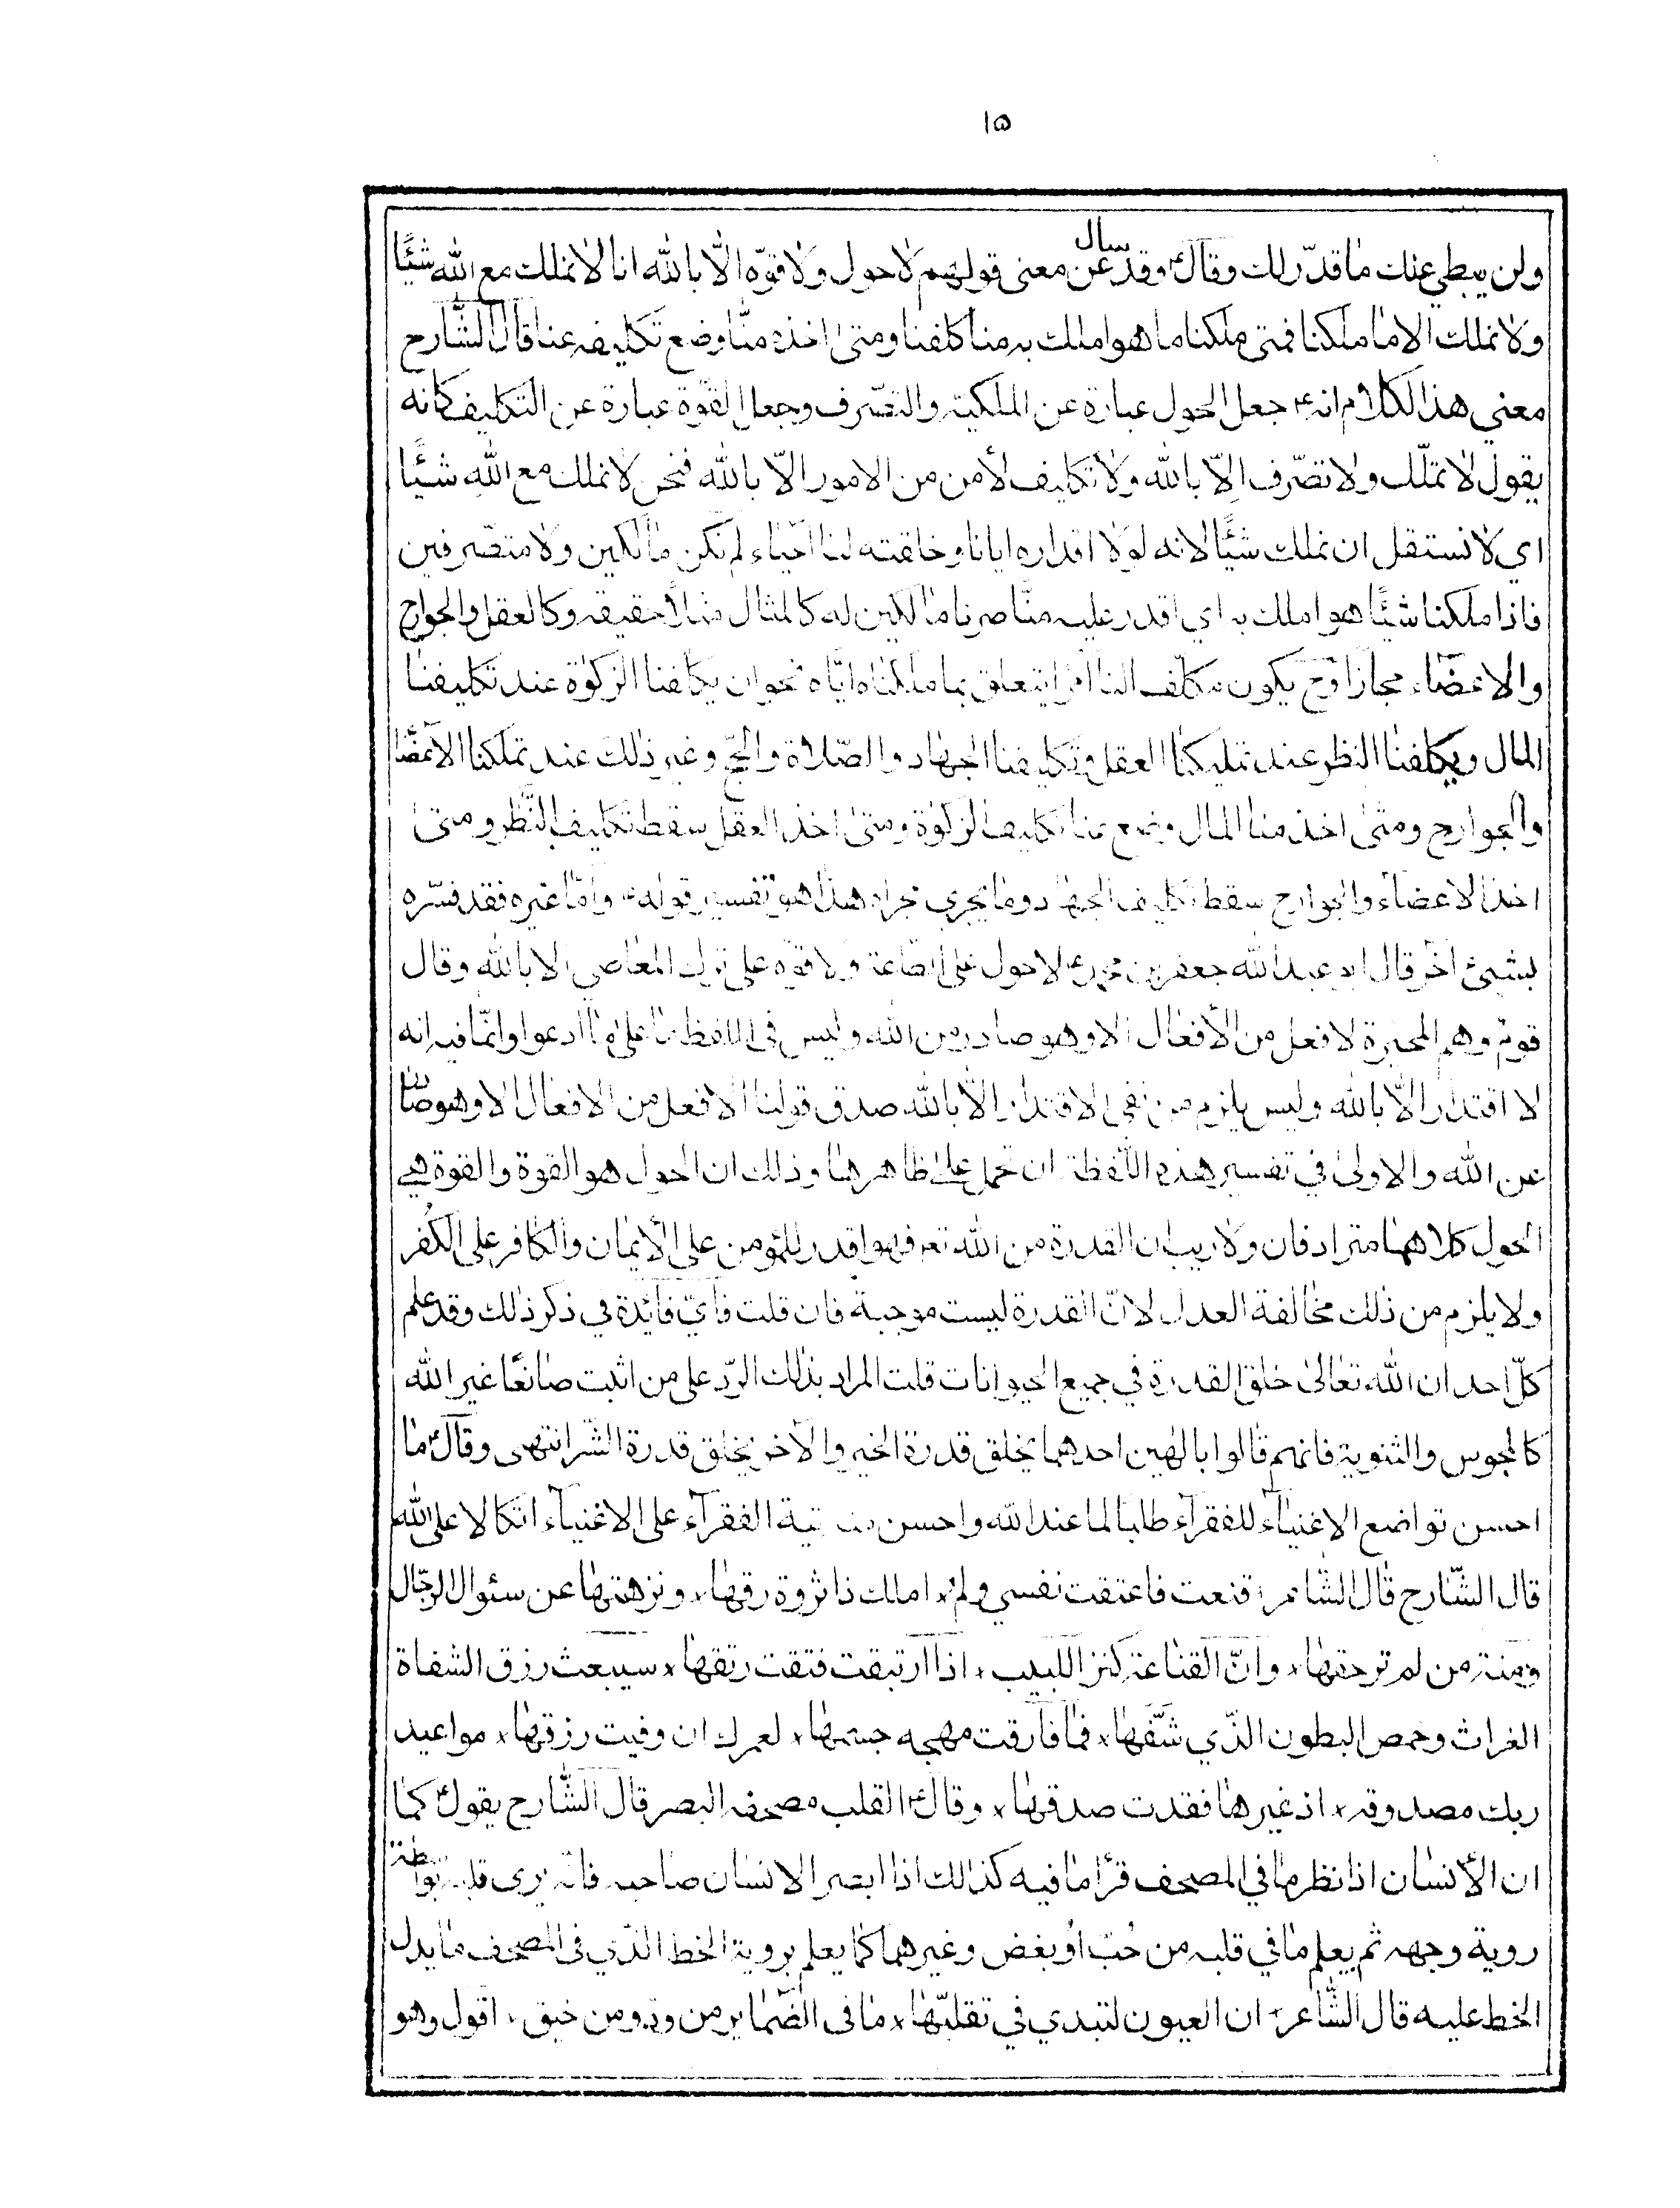 ١٥
ولن يبطئ عنك ما قدّر لك وقال ع وقد سال عن معنى قولهم لا حول ولا قوّة الّا بالله انا لا نملك مع الله شيئًا
ولا نملك الا ما ملكنا فمتى ملكنا ما هو املك به منا كلفنا ومتى اخذه منّا وضع تكليفه عنا قال الشّارح
معنى هذا الكلام انه ع جعل الحول عبارة عن الملكية والتصّرف وجعل القوّة عبارة عن التكليف كانه
يقول لا تملّك ولا تصّرف الّا بالله ولا تكليف لأمن من الامور الّا بالله فنحن لا نملك مع الله شيئًا
اي لا نستقل ان نملك شيئًا لانه لولا اقداره ايانا وخلقته لنا احياء لم نكن مالكين ولا متصّرفين
فاذا ملكنا شيئًا هو املك به اي اقدر عليه منّا صرنا مالكين له كالمثال مثلا حقيقه وكالعقل والجوارح
والاعضاء مجازا وح يكون مكلّف النا امرا يتعلق بما ملكناه ايّاه نحو ان يكلفنا الزكوة عند تكليفنا
المال ويكلفنا النظر عند تمليكنا العقل وتكليفنا الجهاد والصّلاة والحجّ وغير ذلك عند تملكنا الاعضّا
والجوارح ومتى اخذ منا المال وضع عنا تكليف الزكوة ومتى اخذ العقل سقط تكليف النّظر ومتى
اخذ الاعضاء والجوارح سقط تكليف الجهاد وما يجري مجراه هذا هو تفسير قوله ع وامّا غيره فقد فسّره
بشيئ آخر قال ابو عبد الله جعفر بن محمد ع لا حول على الطاعة ولا قوة على ترك المعاصي الا بالله وقال
قوم وهم المجبرة لا فعل من الأفعال الا وهو صادر من الله وليس في اللفظ ما على ما ادعوا وانّما فيه انه
لا اقتدار الّا بالله وليس يلزم من نفي الاقتدار الّا بالله صدق قولنا لا فعل من الافعال الا وهو صادر
عن الله والاولى في تفسير هذه اللفظة ان تحمل على ظاهرها وذلك ان الحول هو القوة والقوة هي
الحول كلاهما مترادفان ولا ريب ان القدرة من الله تعه فهو اقدر للمؤمن على الأيمان والكافر على الكُفر
ولا يلزم من ذلك مخالفة العدل لانّ القدرة ليست موجبة فان قلت فايّ فائدة في ذكر ذلك وقد علم
كلّ احد ان الله تعالى خلق القدرة في جميع الحيوانات قلت المراد بذلك الرّد على من اثبت صانعًا غير الله
كالمجوس والثنوية فانهم قالوا بالهين احدهما يخلق قدرة الخير والآخر يخلق قدرة الشّر انتهى وقال ع ما
احسن تواضع الاغنياء للفقرآء طلبا لما عند الله واحسن منه تية الفقرآء على الاغنياء اتكالا على الله
قال الشّارح قال الشّاعر قنعت فاعتقت نفسي ولم * املك ذا ثروة رقها * ونزهتها عن سئوال الرجّال
ومنة من لم تر حقها * وانّ القناعة كنز اللبيب * اذا ارتبقت فتقت رتقها * سيبعث رزق الشفاة
الغراث وخمص البطون الذّي شقّها * فما فارقت مهجه جسمها * لعمرك ان وفيت رزقها * مواعيد
ربك مصدوقه * اذ غيرها فقدت صدقها * وقال ع القلب مصحف البصر قال الشّارح يقول ع كما
ان الأنسان اذا نظر ما في المصحف قرأ ما فيه كذالك اذا ابصر الانسان صاحبه فانه يرى قلبه بواسطة
روية وجهه ثم يعلم ما في قلبه من حُبّ أو بغض وغيرهما كما يعلم بروية الخط الذّي في المصحف ما يدل
الخط عليه قال الشّاعر * ان العيون لتبدي في تقلبّها * ما في الضّماير من ودٍ ومن حنق * اقول وهو